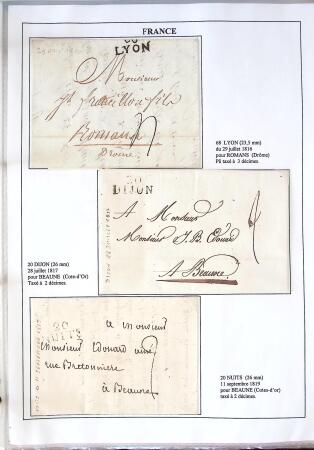 FRANCE
68
LYON
Monsieur
fils
Romans
Drome
68 LYON (23,5 mm)
du 29 juillet 1816
pour ROMANS (Drôme)
Pli taxé à 3 décimes.
20
DIJON
A Monsieur
Monsieur J. B. Edouard
A Beaune
20 DIJON (26 mm)
28 juillet 1817
pour BEAUNE (Cote-d'Or)
Taxé à 2 décimes.
20
NUITS
a Monsieur
Monsieur Edouard ainé
rue Bretonniere
à Beaune
20 NUITS (26 mm)
11 septembre 1819
pour BEAUNE (Cotes-d'or)
taxé à 2 décimes.